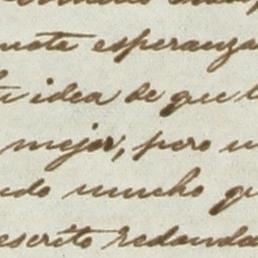 mota esperanza
idea de que
mejor, pero
ndo mucho qu
escrito redunda